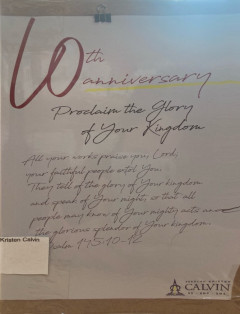 60th
anniversary
Proclaim the Glory
of Your Kingdom
All your works praise you, Lord;
your faithful people extol You.
They tell of the glory of Your kingdom
and speak of Your might, so that all
people may know of Your mighty acts and
the glorious splendor of Your kingdom.
Psalm 145:10-12
Kristen Calvin
CALVIN